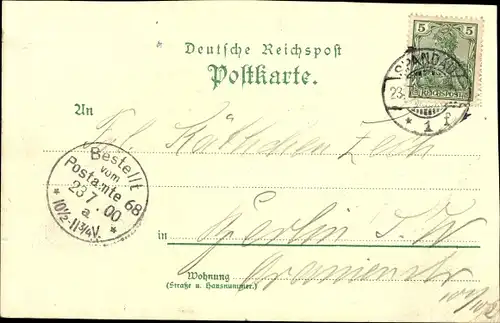 Deutsche Reichspost
Postkarte.
5 5
REICHSPOST
SPANDAU
23.7
* 1 f
An
Frl. Käthchen Zech
Bestellt
vom
Postamte 68
23 7 00
a
* 10½-11¾V. *
in Berlin S. W
Wohnung Oranienstr
(Straße u. Hausnummer)